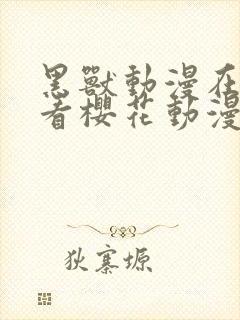 黑獸動漫在
看櫻花動漫
狄寨塬